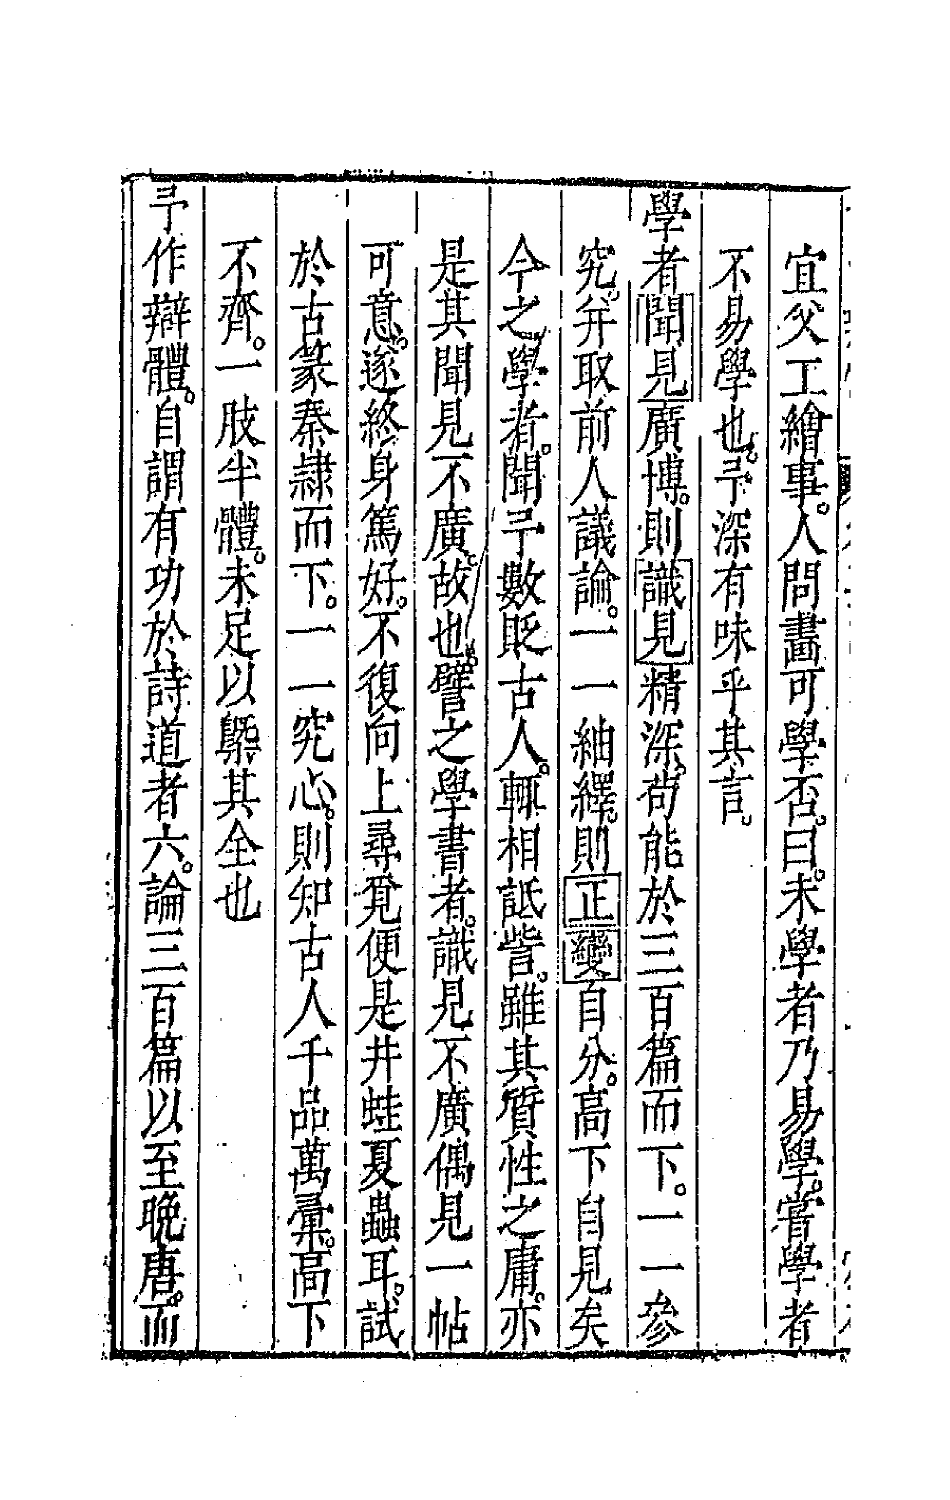 宜父工繪事。人問畫可學否。曰。未學者乃易學。嘗學者
不易學也。予深有味乎其言。
學者聞見廣博。則識見精深。苟能於三百篇而下。一一參
究。并取前人議論。一一紬繹。則正變自分。高下自見矣
今之學者。聞予數貶古人。輒相詆訾。雖其質性之庸。亦
是其聞見不廣。故也。譬之學書者。識見不廣偶見一帖
可意。遂終身篤好。不復向上尋覓便是井蛙夏蟲耳。試
於古篆秦隷而下。一一究心。則知古人千品萬彙。高下
不齊。一肢半體。未足以槩其全也
予作辯體。自謂有功於詩道者六。論三百篇以至晚唐。而